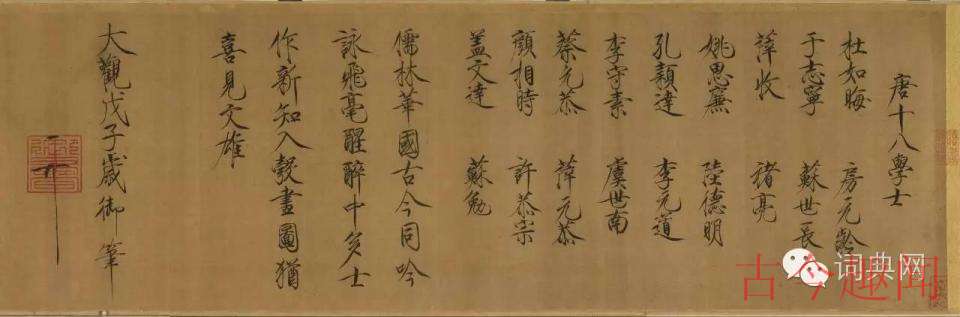 唐十八學士
杜如晦 房元齡
于志寧 蘇世長
薛收 褚亮
姚思廉 陸德明
孔穎達 李元道
李守素 虞世南
蔡元恭 薛元恭
顏相時 許恭宗
蓋文達 蘇勉
儒林華國古今同吟
詠飛毫醒醉中多士
作新知入彀畫圖猶
喜見文雄
大觀戊子歲御筆
词典网
古今趣闻